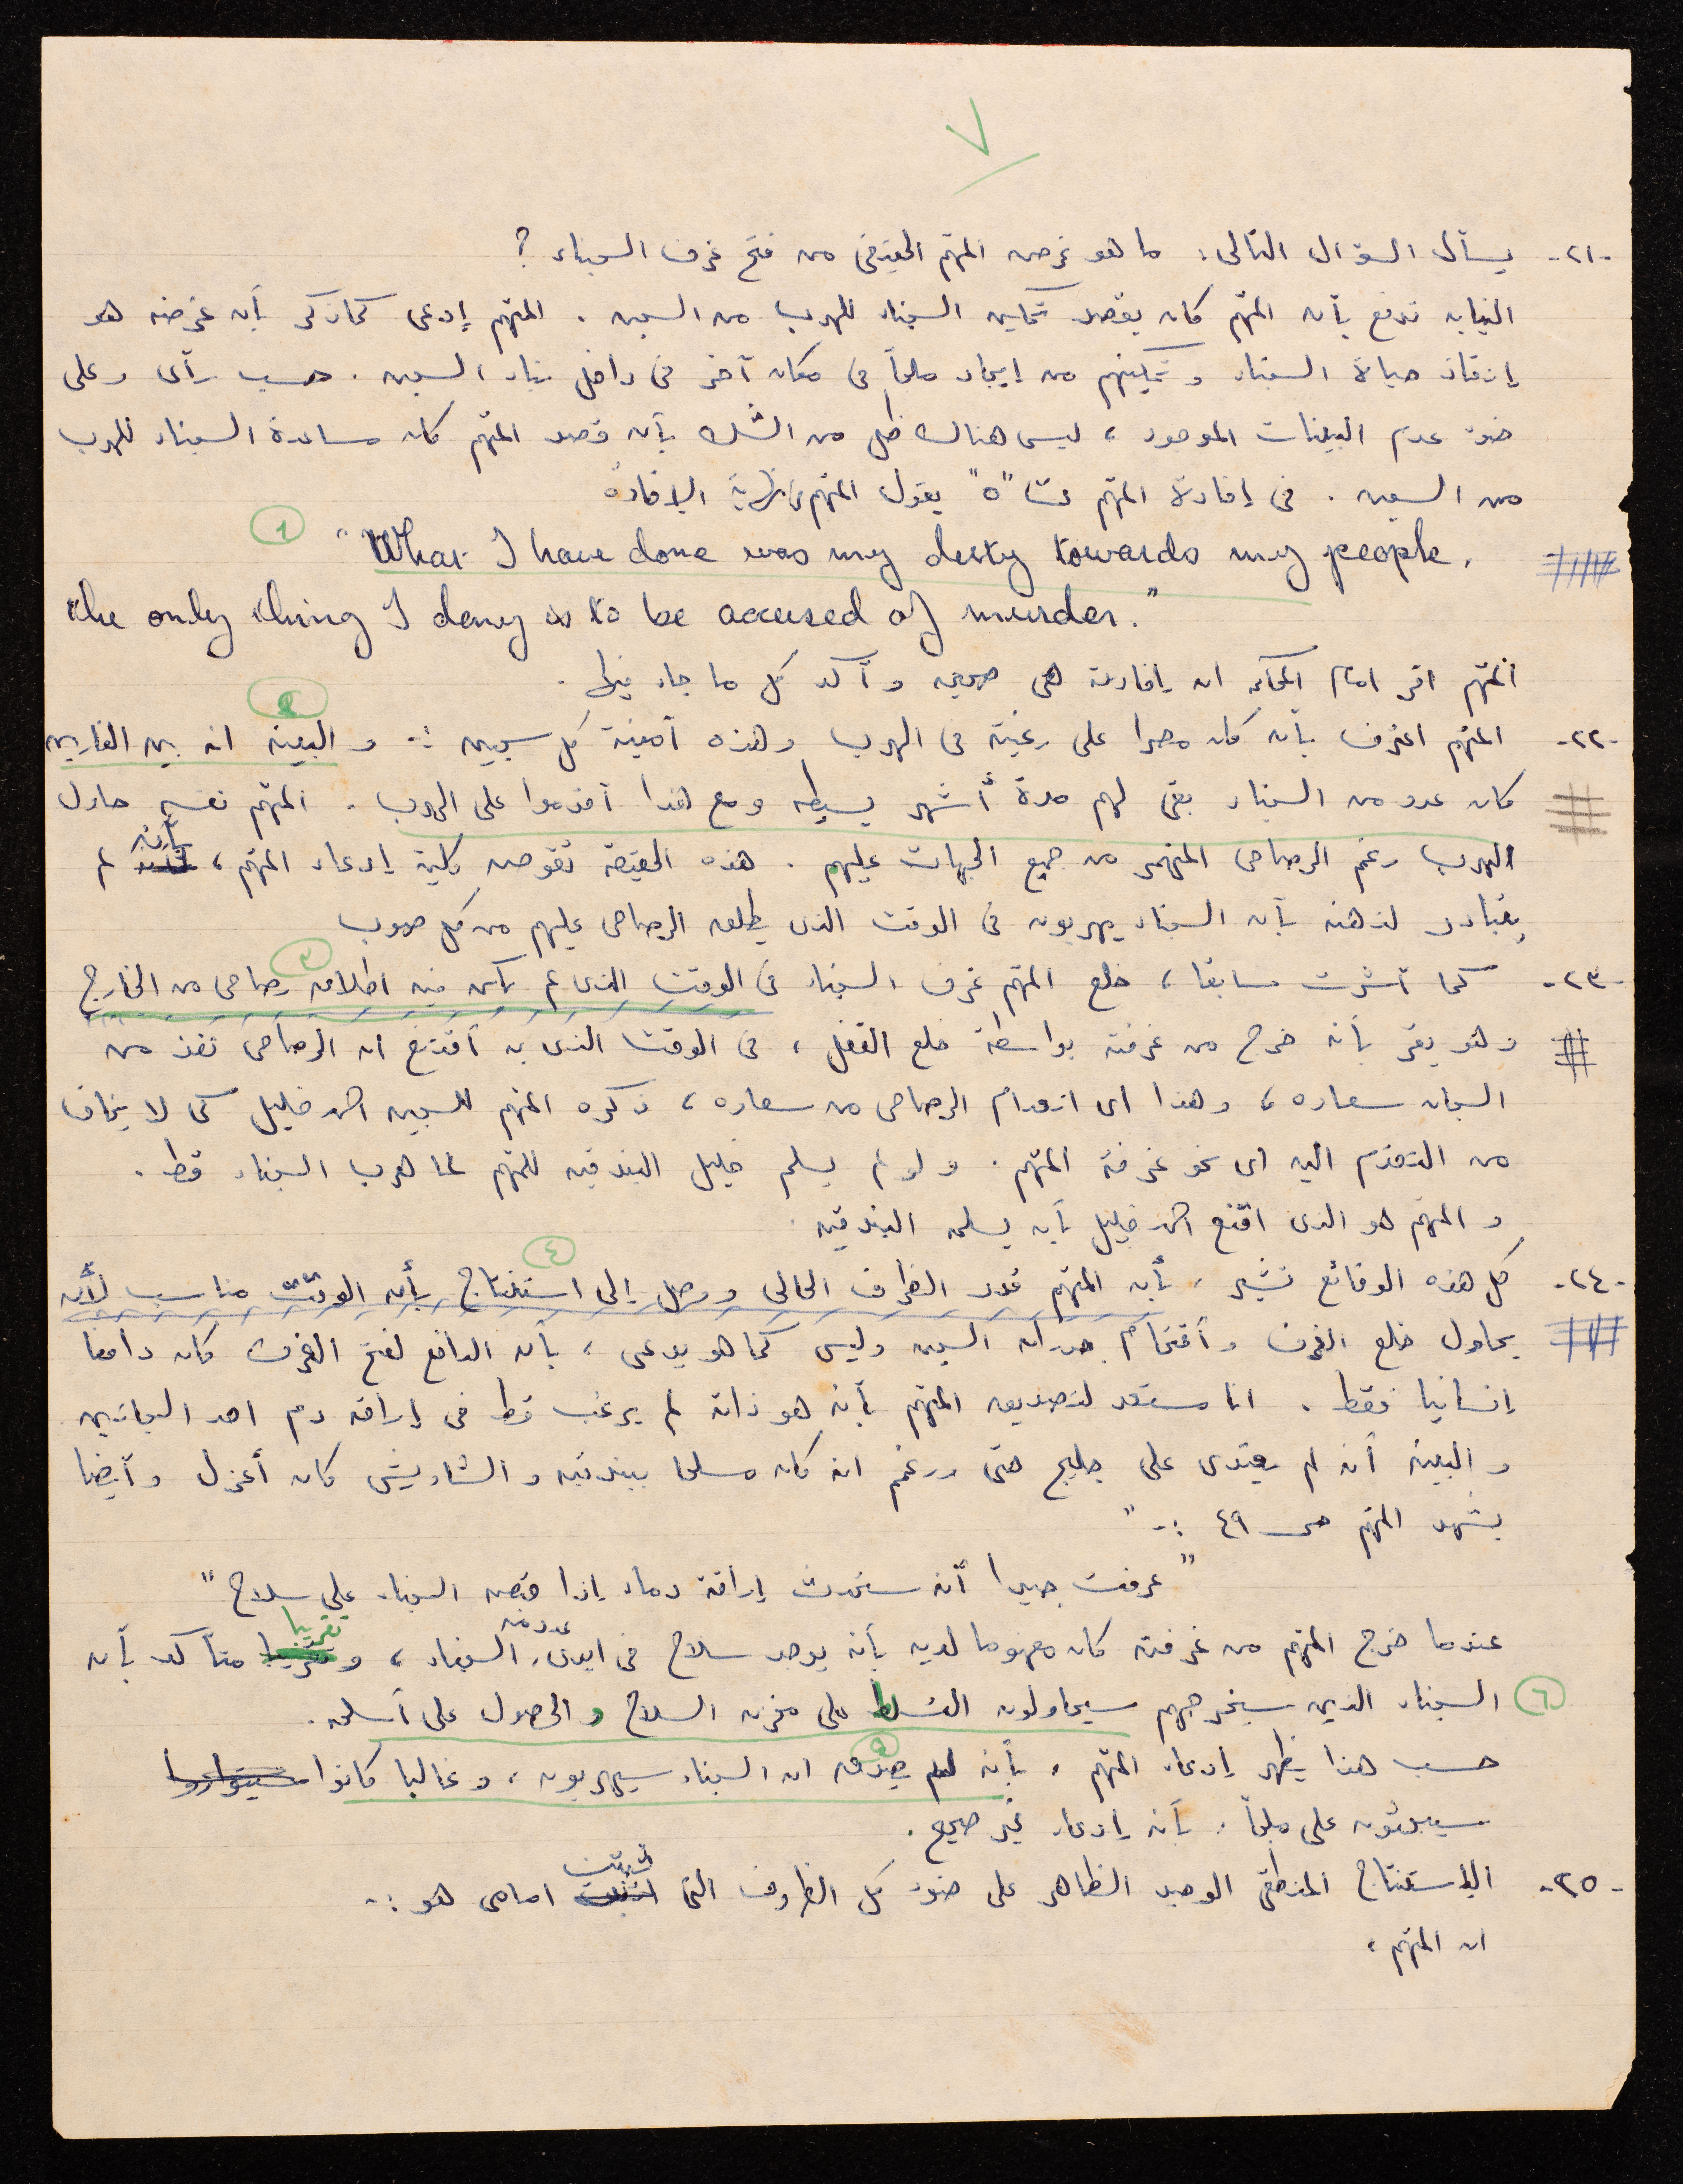 ٧
-٢١- يسأل السؤال التالي: ما هو غرض المتهم الحقيقي من فتح غرف السجناء ؟
النيابه تدفع بأن المتهم كان يقصد تمكين السجناء للهرب من السجن . المتهم إدعى كما ذكر بأن غرضه هو
إنقاذ حياة السجناء وتمكينهم من إيجاد ملجأ في مكان آخر في داخل بناء السجن . حسب رأى وعلى
ضوء عدم البينات الموجود ، ليس هناك ظل من الشك بأن قصد المتهم كان مساعدة السجناء للهرب
من السجن . في إفادة المتهم "٥" يقول المتهم في نهاية الإفادة
١
"What I have done was my duty towards my people.
the only thing I deny is to be accused of murder."
المتهم اقر امام المحكمه ان إفادته هي صحيحه وأكد كل ما جاء فيها .
٢
-٢٢- المتهم اعترف بأنه كان مصرا على رغبته في الهرب وهذه أمنية كل سجين :- والبينه انه بين الفارين
كان عدد من السجناء بقى لهم مدة أشهر بسيطه ومع هذا أقدموا على الهرب . المتهم نفسه حاول
الهرب رغم الرصاص المنهمر من جميع الجهات عليهم . هذه الحقيقة تقوض كلية إدعاء المتهم ، بأنه لم
يتبادر لذهنه بأن السجناء يهربون في الوقت الذي يطلق الرصاص عليهم من كل صوب
٣
-٢٣- كما أشرت سابقا ، خلع المتهم غرف السجناء في الوقت الذي لم يكن فيه اطلاق رصاص من الخارج
وهو يقر بأنه خرج من غرفته بواسطة خلع القفل ، في الوقت الذي به أقتنع ان الرصاص نفذ من
السجان سعاده ، وهذا اى انعدام الرصاص من سعاده ، ذكره المتهم للسجين احمد خليل كى لا يخاف
من التقدم اليه اى نحو غرفة المتهم . ولو لم يسلم خليل البندقيه للمتهم لما هرب السجناء قط .
و المتهم هو الذي اقنع احمد خليل بأن يسلمه البندقيه .
٤
-٢٤- كل هذه الوقائع تشير ، بأن المتهم قدر الظرف الحالي ووصل إلى استنتاج بأن الوقت مناسب لأن
يحاول خلع الغرف وأقتحام جدران السجن وليس كما هو يدعى ، بأن الدافع لفتح الغرف كان دافعا
إنسانيا فقط . انا مستعد لتصديق المتهم بأنه هو ذاته لم يرغب قط في إراقة دم احد السجانين
والبينه أنه لم يعتدى على جليج حتى ورغم انه كان مسلحا ببندقيه والشاويش كان أعزل وأيضا
يشهد المتهم ص ٤٩ :- "
" عرفت جيدا أنه ستحدث إراقة دماء إذا قبض السجناء على سلاح "
عندما خرج المتهم من غرفته كان مفهوما لديه بأنه يوجد سلاح في ايدى عدد من السجناء ، و تقريبا متأكد بأن
٦ السجناء الذين سيخرجهم سيحاولون التسلط على مخزن السلاح والحصول على أسلحه .
٥
حسب هذا يظهر إدعاء المتهم ، بأنه لم يصدق ان السجناء سيهربون ، وغالبا كانوا
سيبحثون على ملجأ ، بأنه إدعاء غير صحيح .
-٢٥- الإستنتاج المنطقي الوحيد الظاهر على ضوء كل الظروف التي أثبتت امامى هو :-
ان المتهم ،